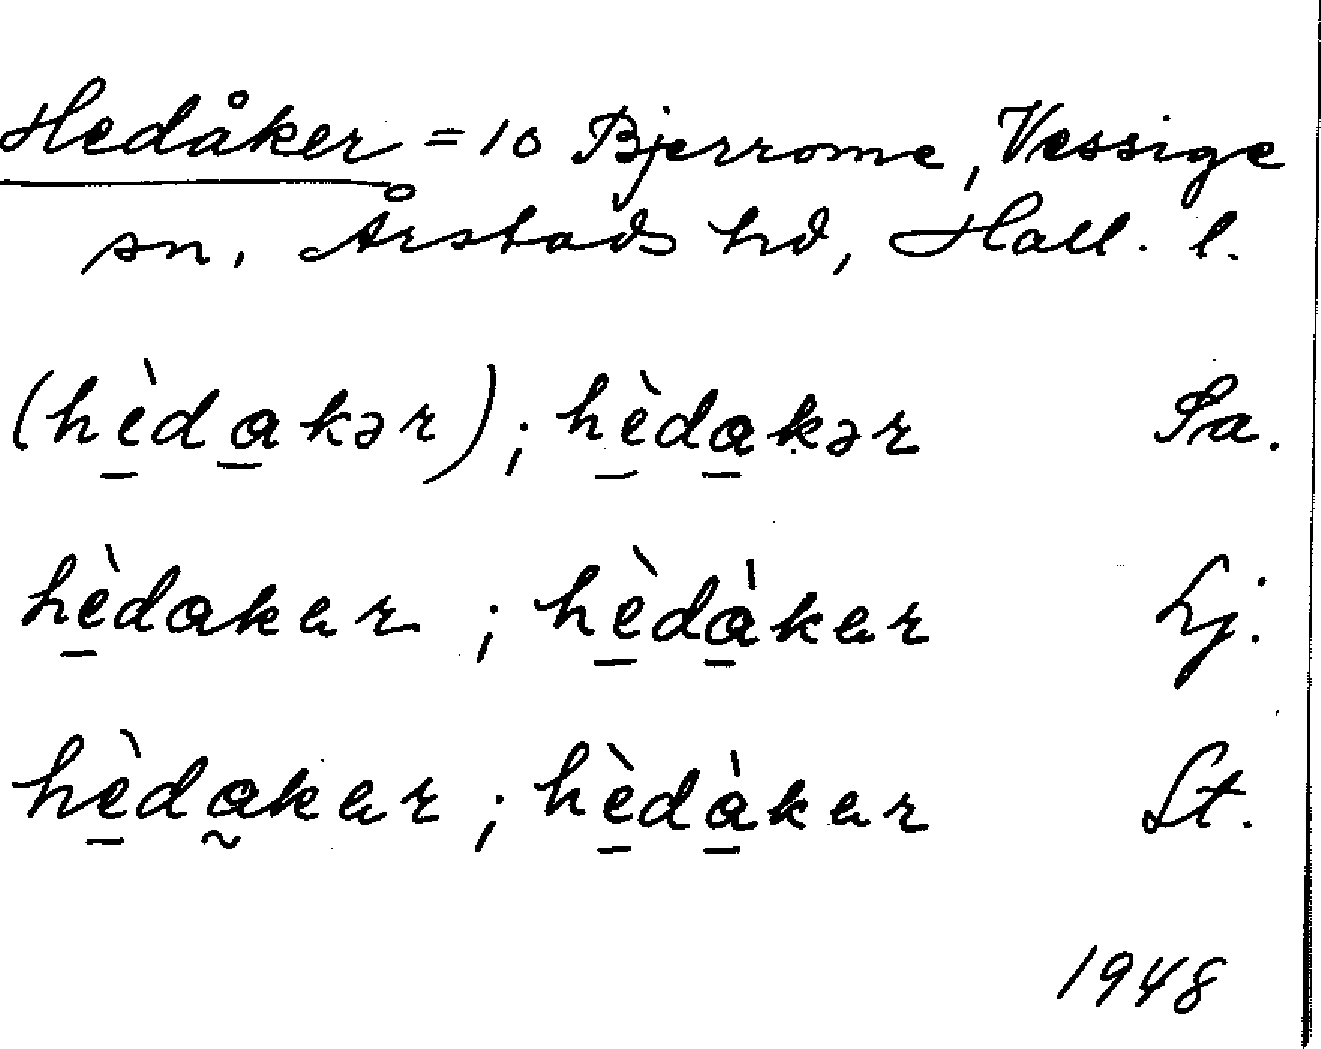 Hedåker = 10 Bjerrome, Vessige
sn, Årstads hd, Hall. l.
(hè̱da̱kər); hè̱da̱kər Sa.
hè̱dakɐr; hè̱dà̱kɐr Lj.
hè̱da̰kɐr; hè̱dà̱kɐr St.
1948